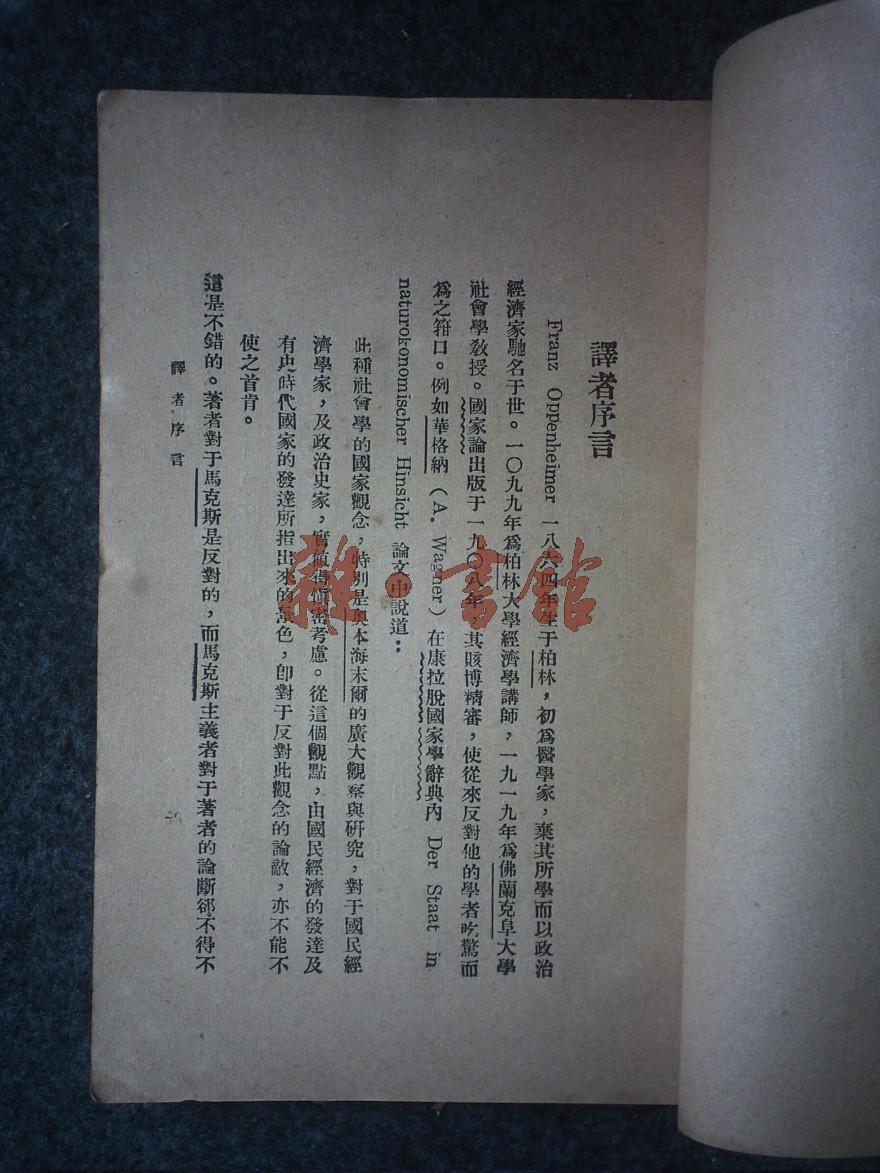 譯者序言
Franz Oppenheimer 一八六四年生于柏林，初爲醫學家，棄其所學而以政治
經濟家馳名于世。一〇九九年爲柏林大學經濟學講師，一九一九年爲佛蘭克阜大學
社會學教授。國家論出版于一九〇八年，其賅博精審，使從來反對他的學者吃驚而
爲之箝口。例如華格納（A. Wagner）在康拉脫國家學辭典內 Der Staat in
naturokonomischer Hinsicht 論文中說道：
此種社會學的國家觀念，特別是奧本海末爾的廣大觀察與研究，對于國民經
濟學家，及政治史家，實值得 考慮。從這個觀點，由國民經濟的發達及
有史時代國家的發達所指出來的景色，即對于反對此觀念的論敵，亦不能不
使之首肯。
這是不錯的。著者對于馬克斯是反對的，而馬克斯主義者對于著者的論斷卻不得不
譯者序言
雜·書館